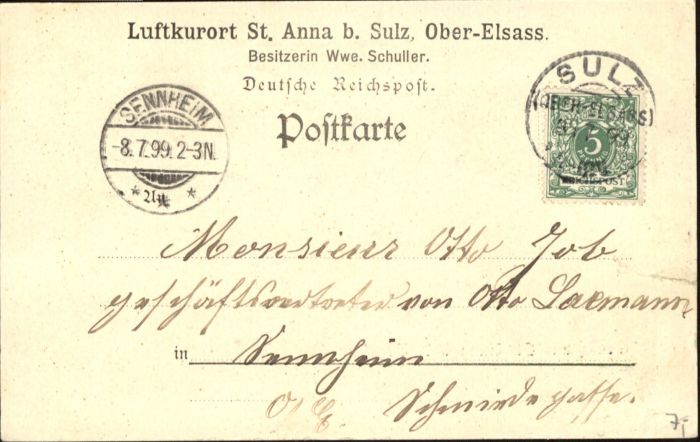 Luftkurort St. Anna b. Sulz, Ober-Elsass.
Besitzerin Wwe. Schuller.
Deutsche Reichspost.
Postkarte
SENNHEIM
-8.7.99.2-3N.
SULZ
(OBER-ELSASS)
5
REICHSPOST
Monsieur Otto Job
geschäftsvertreter von Otto
in Sennheim
O/E. Schmiedgasse.
7,-